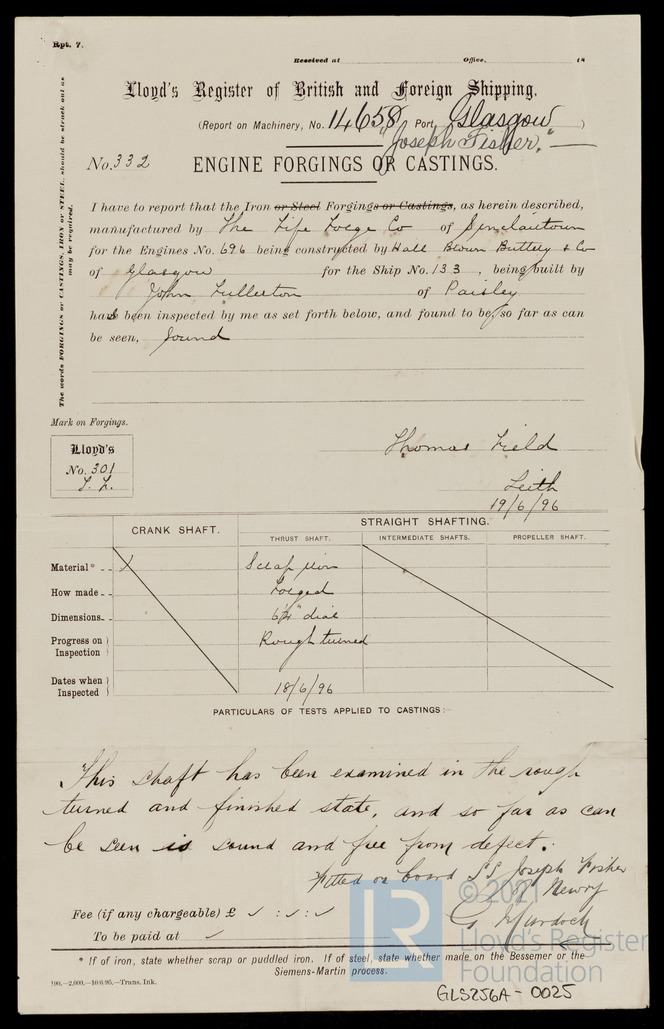 Rpt. 7.
Received at Office, 18
Lloyd's Register of British and Foreign Shipping.
(Report on Machinery, No. 14658 Port Glasgow)
"Joseph Fisher."
No. 332
ENGINE FORGINGS OR CASTINGS.
The words FORGINGS or CASTINGS, IRON or STEEL, should be struck out as may be required.
I have to report that the Iron or Steel Forgings or Castings, as herein described,
manufactured by The Fife Forge Co of Sinclairtown
for the Engines No. 696 being constructed by Hall Brown Buttery & Co
of Glasgow for the Ship No. 133, being built by
John Fullerton of Paisley
has been inspected by me as set forth below, and found to be, so far as can
be seen, sound
Mark on Forgings.
Lloyd's
No. 301
T. F.
Thomas Field
Leith
19/6/96
CRANK SHAFT.
STRAIGHT SHAFTING.
THRUST SHAFT. INTERMEDIATE SHAFTS. PROPELLER SHAFT.
Material* Scrap iron
How made Forged
Dimensions dia
Progress on Inspection Rough turned
Dates when Inspected 18/6/96
PARTICULARS OF TESTS APPLIED TO CASTINGS:
This shaft has been examined in the rough
turned and finished state, and so far as can
be seen is sound and free from defect.
Fitted on board SS Joseph Fisher
Newry
G. Murdoch
Fee (if any chargeable) £ ✓ : ✓ : ✓
To be paid at ✓
* If of iron, state whether scrap or puddled iron. If of steel, state whether made on the Bessemer or the
Siemens-Martin process.
190.—2,000.—10/6/95.—Trans. Ink.
LR
© 2021
Lloyd's Register
Foundation
GLS256A - 0025